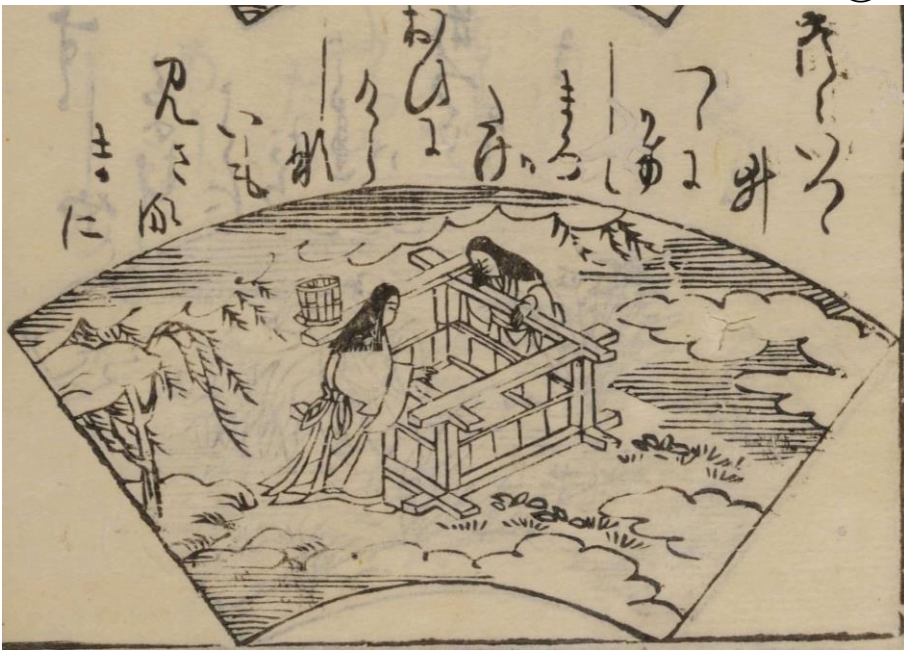 つゝいつゝ
井
つゝに
かけし
まろか
たけ
おひに
けら
しな
いも
見さる
まに